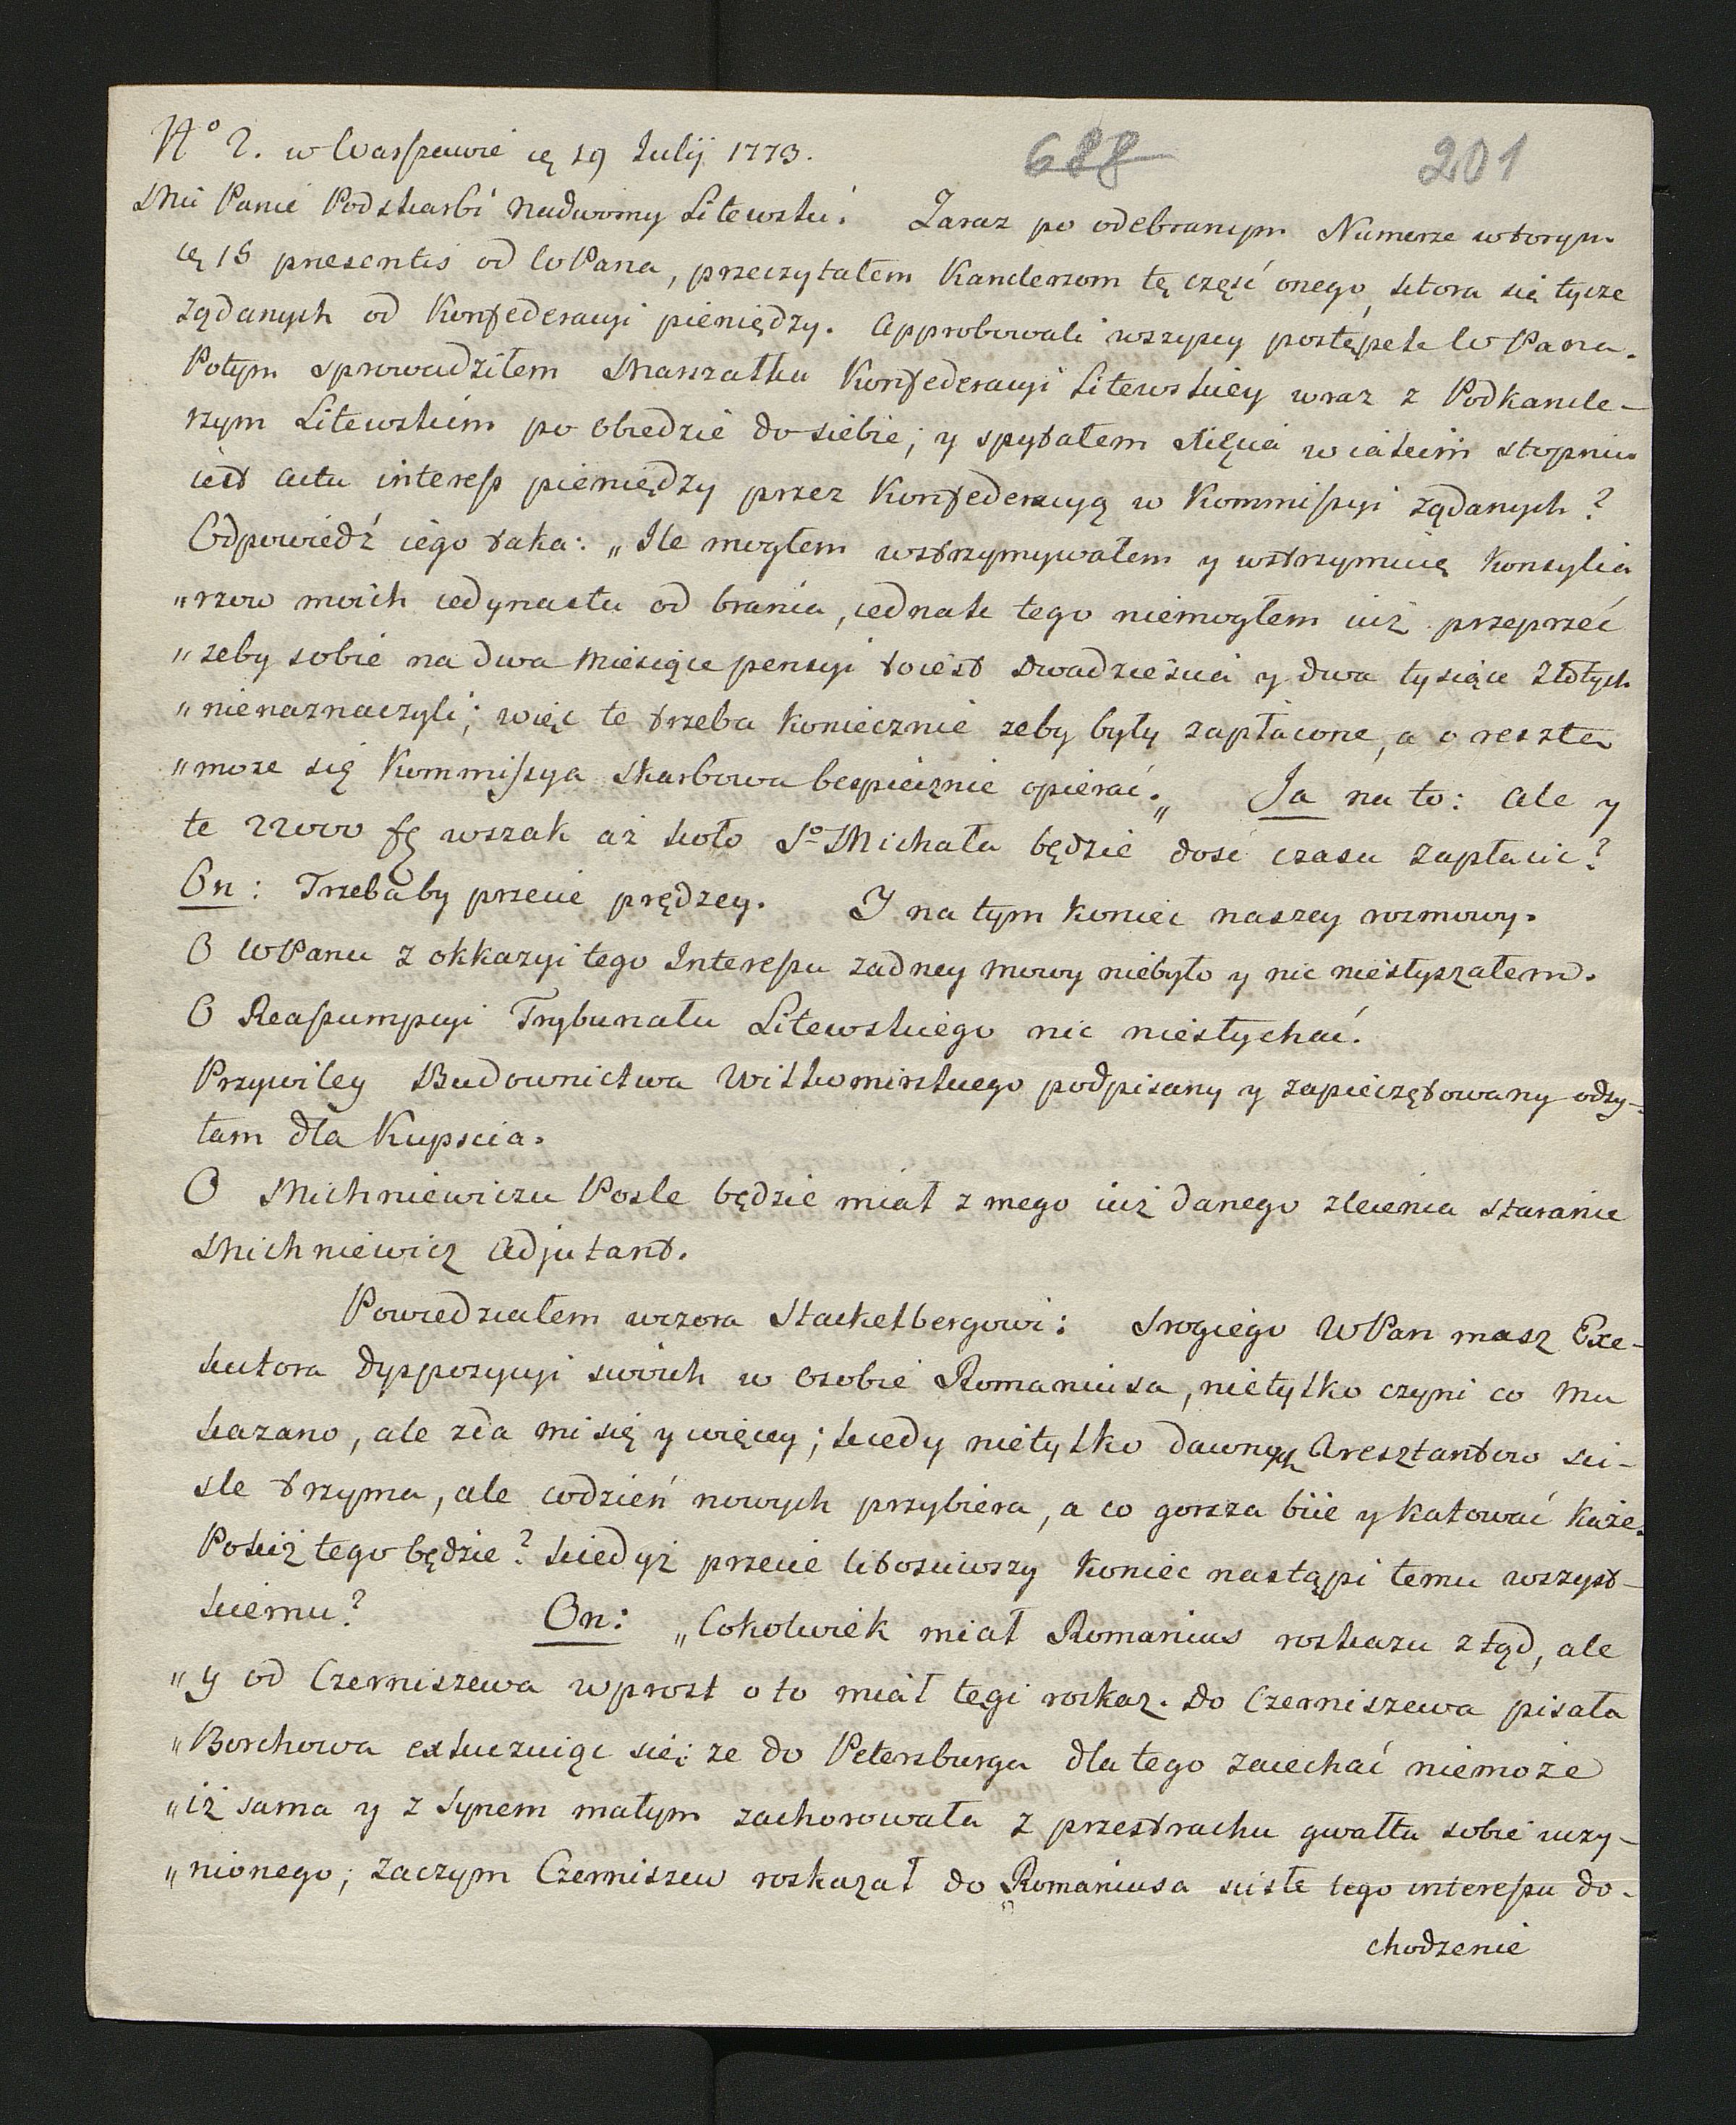 N° 2. w Warszawie ię 19 Julij 1773.
688 201
Mci Panie Podskarbi Nadworny Litewski. Zaraz po odebranym Numerze wtorym
ię 15 presentis od WPana, przeczytałem Kanclerzom tę część onego, ktora się tycze
żądanych od Konfederacyi pieniędzy. Approbowali wszyscy postępek WPana.
Potym sprowadziłem Marszałka Konfederacyi Litewskiey wraz z Podkancle-
rzym Litewskim po obiedzie do siebie; y spytałem Xięcia w iakim stopniu
iest actu interess pieniędzy przez Konfederacyą w Kommissyi żądanych?
Odpowiedź iego taka: „Ile mogłem wstrzymywałem y wstrzymuię Konsylia
„rzow moich iedynastu od brania, iednak tego niemogłem iuż przeprzeć
„zeby sobie na dwa Miesiące pensyi toiest dwadzieścia y dwa tysiące Złotych
„nienaznaczyli; więc te trzeba koniecznie zeby były zapłacone, a o resztę
„może się Kommissya Skarbowa bespiecznie opierać.„ Ja na to: Ale y
te 22000 fl wszak aż koło S° Michała będzie dość czasu zapłacić?
On: Trzebaby przecie prędzey. I na tym koniec naszey rozmowy.
O WPanu z okkazyi tego Interessu żadney mowy niebyło y nic niesłyszałem.
O Reassumpcyi Trybunału Litewskiego nic niesłychać.
Przywiley Budownictwa Wiłkomirskiego podpisany y zapieczętowany odsy-
łam dla Kupscia.
O Michniewiczu Posle będzie miał z mego iuż danego zlecenia staranie
Michniewicz Adjutant.
Powiedziałem wczora Stackelbergowi: Srogiego WPan masz Exe-
kutora dyspozycyi swoich w osobie Romaniusa, nietylko czyni co Mu
kazano, ale zda mi się y więcey; kiedy nietylko dawnych Aresztantow sci-
sle trzyma, ale codzień nowych przybiera, a co gorsza biie y katować każe.
Pokiż tego będzie? kiedyż przecie litosciwszy koniec nastąpi temu wszyst-
kiemu? On: „Cokolwiek miał Romanius roskazu ztąd, ale
„y od Czerniszewa wprost o to miał tęgi roskaz. Do Czerniszewa pisała
„Borchowa exkuzuiąc się: ze do Petersburga dla tego zaiechać niemoże
„iż sama y z Synem małym zachorowała z przestrachu gwałtu sobie uczy-
„nionego; zaczym Czerniszew roskazał do Romaniusa scisłe tego interessu do-
chodzenie